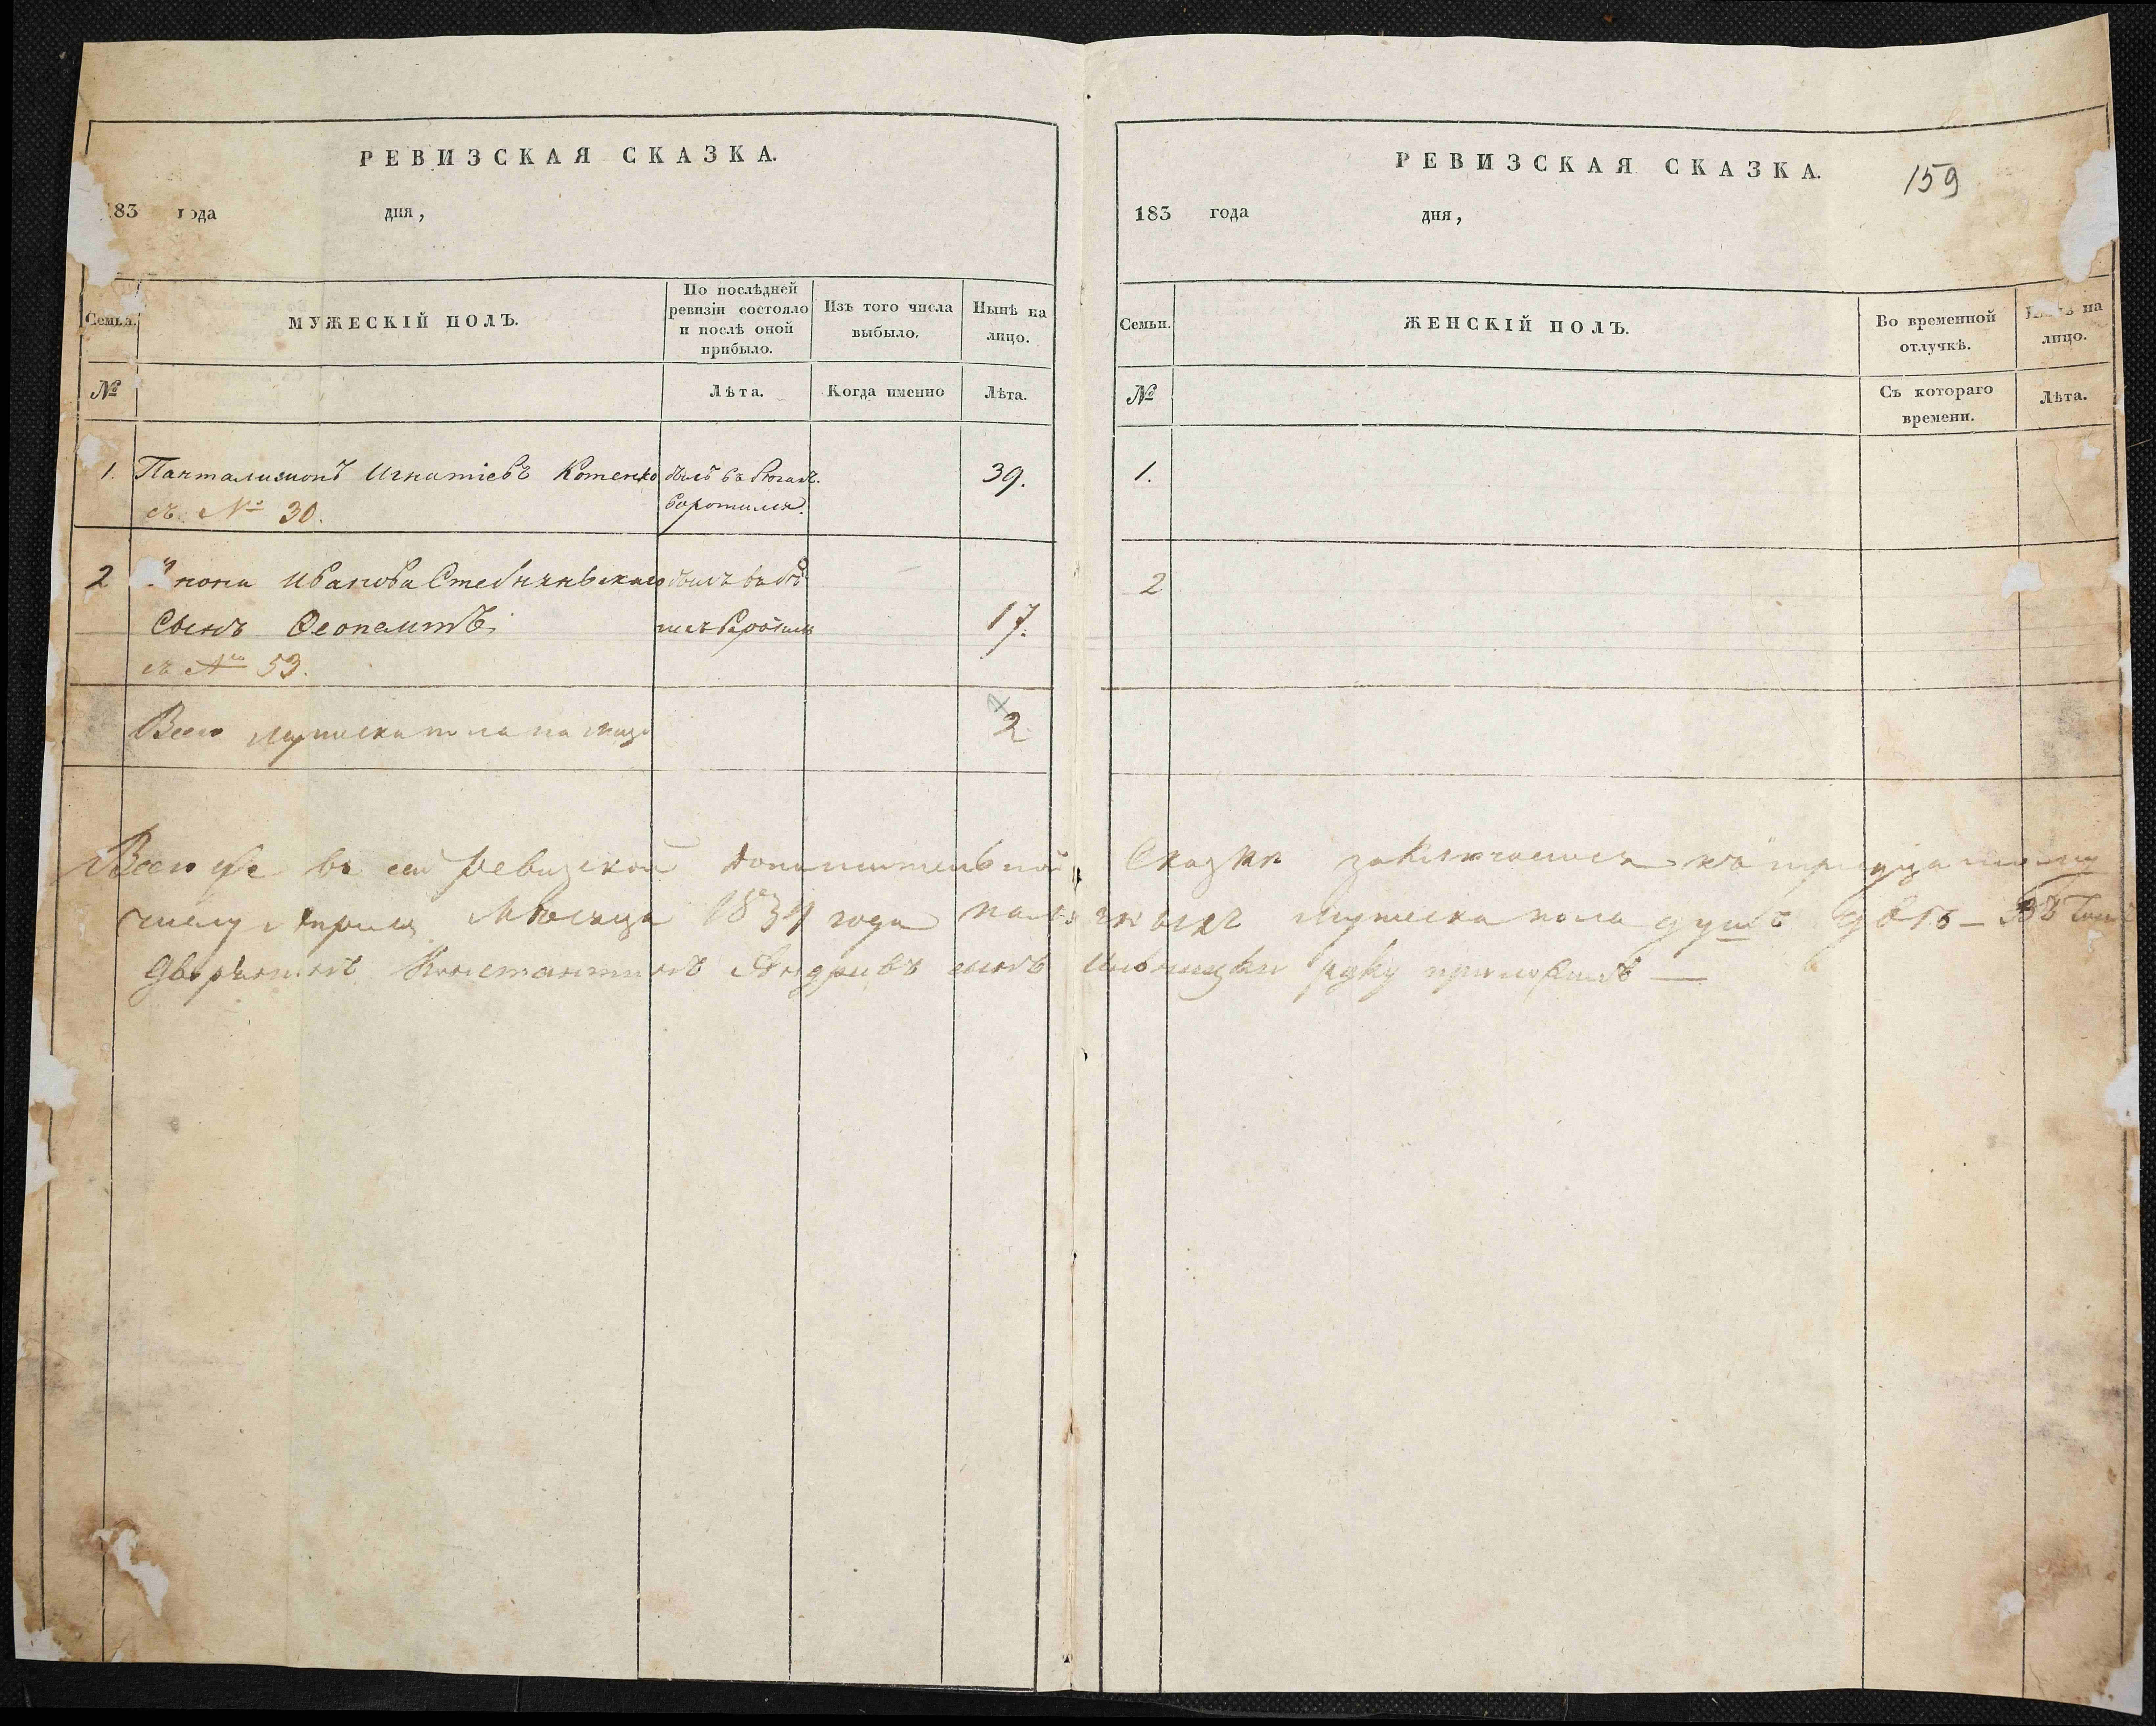 РЕВИЗСКАЯ СКАЗКА.
183 года дня,
Семьи.
МУЖЕСКІЙ ПОЛЪ.
По послѣдней
ревизіи состояло
и послѣ оной
прибыло.
Изъ того числа
выбыло.
Нынѣ на
лицо.
№
Лѣта.
Когда именно
Лѣта.
1. Панталимонъ Игнатіевъ Котенко былъ въ 39.
съ № 30. воротился.
2 Ивана Стебнянскаго былъ въ
Сынъ Феопемптъ 17.
съ № 53.
Всего мужеска пола на лицо 2
РЕВИЗСКАЯ СКАЗКА.
159
183 года дня,
Семьи.
ЖЕНСКІЙ ПОЛЪ.
Во временной
отлучкѣ.
на
лицо.
№
Съ котораго
времени.
Лѣта.
1.
2
Всего же въ сей ревизской дополнительной Сказки заключается къ тридцатому
числу Апреля Месяца 1834 года наличныхъ мужеска пола душъ двѣ — Въ томъ
Дворянинъ Константинъ Андреевъ сынъ руку приложилъ —